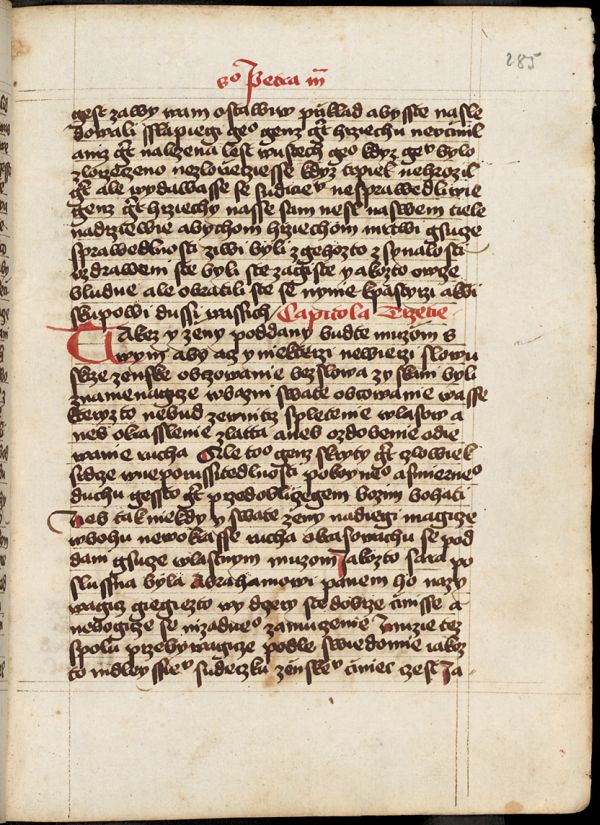 285
So Petra iii
gest za wy wam ostawiw prziklad abysste nasle
dowali sslapiegi geo genz gt hrziechu nevcinil
aniz gt nalezena lest wustech geo kdyz geu bylo
zlorzeczeno nezlorzeciesse kdyz trpiel nehrozil
gt ale wydawasse se sudiciu nesprawedliwie
genz gt hrziechy nasse sam nesl naswem tiele
nadrziewie abychom hrziechom mrtwi gsuze
sprawedlnosti ziwi byli zgehozto zsynalosti
vzdraweni ste byli ste zagiste yakozto owcze
bludne ale obratili ste se nynie kpastyrzi a bi
skupowi dussi wassich Capitola Trzetie
Takez y zeny poddany budte muzom s
wym aby ac y niekterzi newierzi slowu
skrze zenske obczowanie bez slowa zyskani byli
znamenagicze wbazni swate obcowanie wasse
kteryzto nebud zewnitrz spletenie wlasow a
neb okrasslenie zlatta aneb ozdobenie odie
wanie rucha Ale too genz skryty gt czlowiek
sirdze wneporussitedlnosti pokoyneo a smierneo
duchu gessto gt przed obliczegem bozim bohati
Neb tak niekdy y swate zeny nadiegi magicze
wbohu newokrasse rucha okrasowachu se pod
dani gsucze wlastnym muzom Jakozto sara po
slussna byla Abrahamowi panem ho nazy
wagicz giegiezto wy dcery ste dobrze cinisse a
nebogicze se nizadneo zamuczenie Muzie tez
spolu przebywagicze podle swiedomie iakoz
to mdleyssieu sudeczku zenskeu ciniecz czest Ja